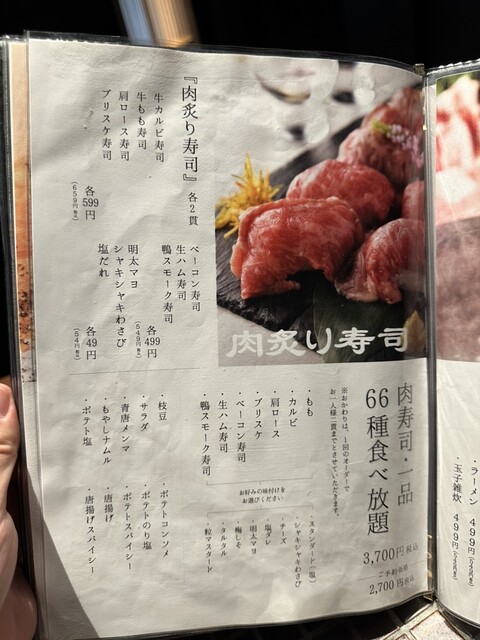 『肉炙り寿司』 各2貫
牛カルビ寿司
牛もも寿司
肩ロース寿司
ブリスケ寿司
各599円
(659円税込)
ベーコン寿司
生ハム寿司
鴨スモーク寿司
各499円
(549円税込)
明太マヨ
シャキシャキわさび
塩だれ
各49円
(54円税込)
肉炙り寿司
肉寿司・一品
66種食べ放題
3,700円税込
ご予約価格
2,700円税込
※おかわりは、1回のオーダーで
お一人様一貫までとさせていただきます。
・もも
・カルビ
・肩ロース
・ブリスケ
・ベーコン寿司
・生ハム寿司
・鴨スモーク寿司
お好みの味付けを
お選びください
・スタンダード(塩)
・シャキシャキわさび
・チーズ
・塩ダレ
・明太マヨ
・梅しそ
・タルタル
・粒マスタード
・枝豆
・サラダ
・青唐メンマ
・もやしナムル
・ポテト塩
・ポテトコンソメ
・ポテトのり塩
・ポテトスパイシー
・唐揚げ
・唐揚げスパイシー
・ラーメン 499円
・玉子雑炊 499円